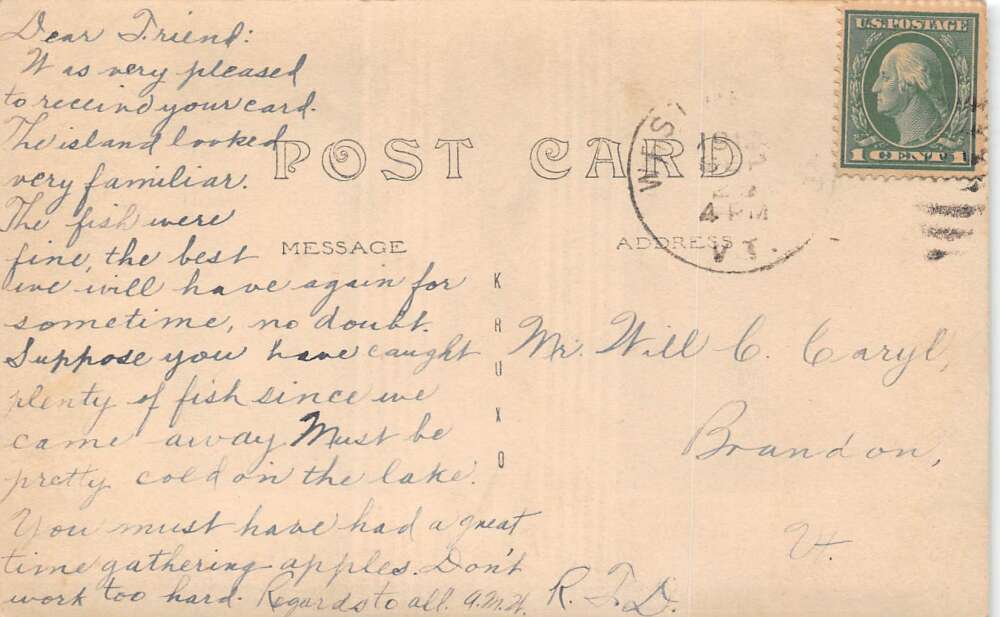 Dear Friend:
Was very pleased
to receive your card.
The island looked
very familiar.
The fish were
fine, the best
we will have again for
sometime, no doubt.
Suppose you have caught
plenty of fish since we
came away Must be
pretty cold on the lake.
You must have had a great
time gathering apples. Don't
work too hard. Regards to all. A.M.H.
POST CARD
MESSAGE
ADDRESS
KRUXO
U.S. POSTAGE
1 CENT 1
WEST
4 PM
VT.
Mr. Will C. Caryl,
Brandon,
Vt.
R. F. D.